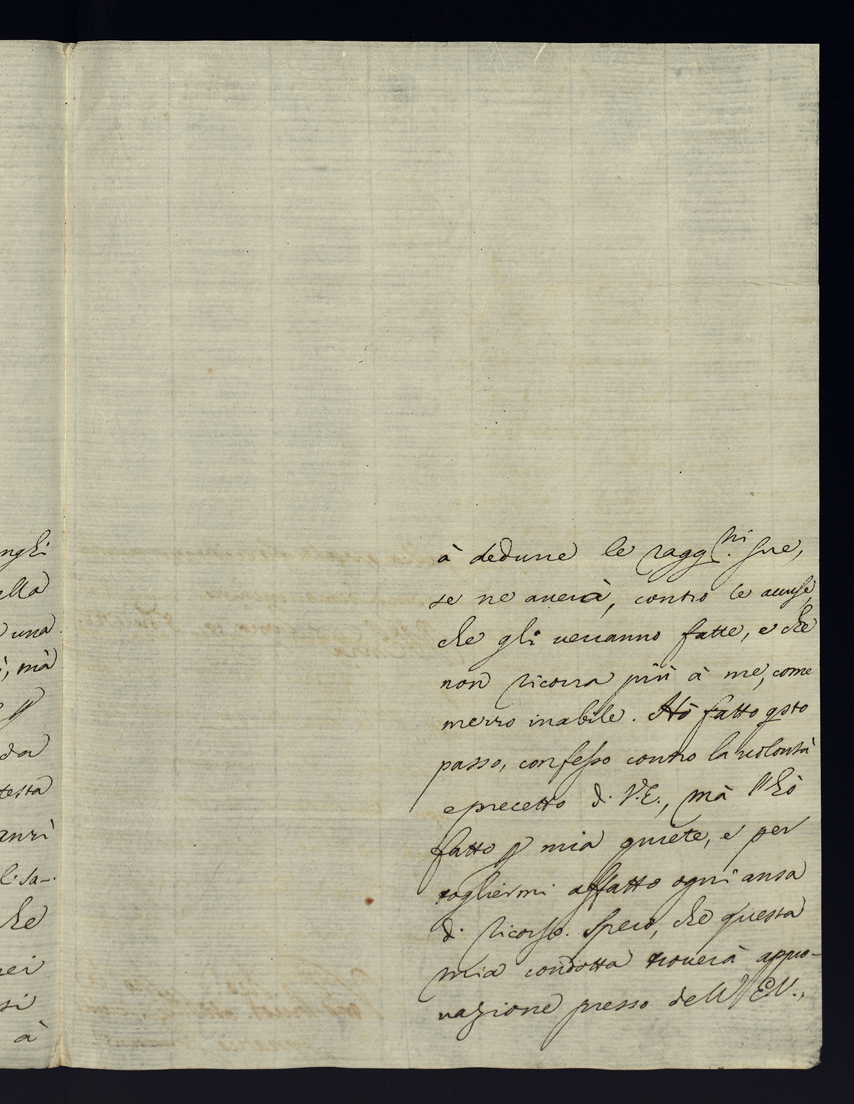 nghi
ella
una
ì, mà
p
da
testa
anzi
l: sa-
che
nei
si
à
à dedurre le ragg.ni sue,
se ne averà, contro le accuse,
che gli verranno fatte, e che
non ricorra più à me, come
mezzo inabile. Hò fatto qsto
passo, confesso contro la volontà
e precetto di V.E., mà l'hò
fatto p mia quiete, e per
togliermi affatto ogni ansa
di ricorso. Spero, che questa
mia condotta troverà appro-
vazione presso dell'E.V.,